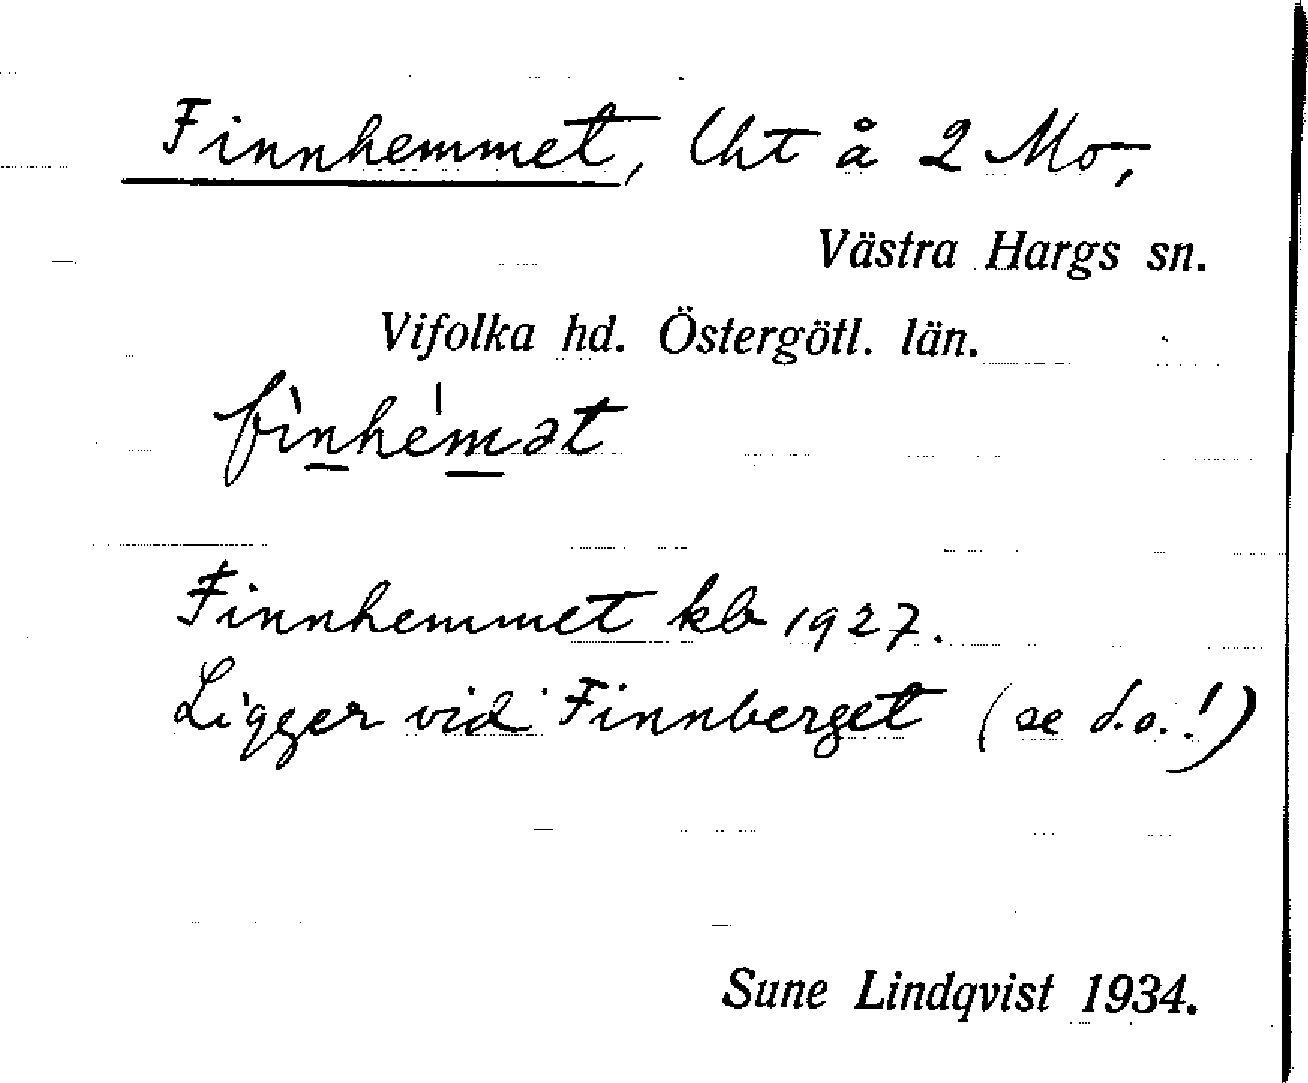 Finnhemmet, lht å 2 Mo,
Västra Hargs sn.
Vifolka hd. Östergötl. län.
fìnhèmət
Finnhemmet kb 1927.
Ligger vid Finnberget (se d.o.!)
Sune Lindqvist 1934.